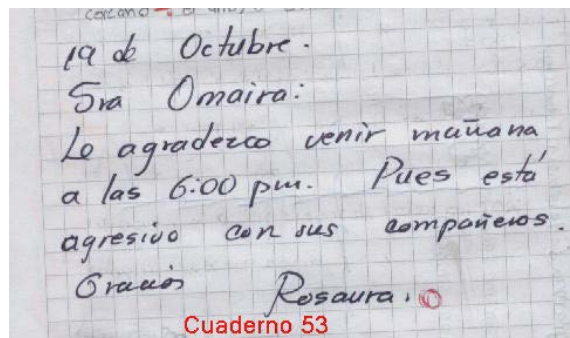 cercano
19 de Octubre.
Sra Omaira:
Le agradezco venir mañana
a las 6:00 pm. Pues está
agresivo con sus compañeros.
Gracias Rosaura.
Cuaderno 53